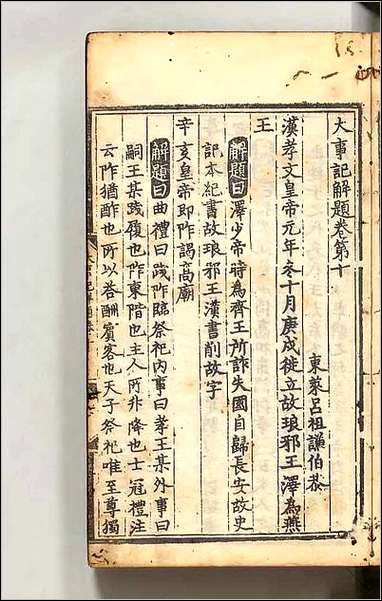 大事記解題卷第十
東萊呂祖謙伯恭
漢孝文皇帝元年冬十月庚戌徙立故琅邪王澤為燕
王
解題曰澤少帝時為齊王所詐失國自歸長安故史
記本紀書故琅邪王漢書削故字
辛亥皇帝即阼謁高廟
解題曰曲禮曰踐阼臨祭祀內事曰孝王某外事曰
嗣王某踐履也阼東階也主人阼非降也士冠禮注
云阼猶酢也所以荅酬賓客也天子祭祀唯至尊獨